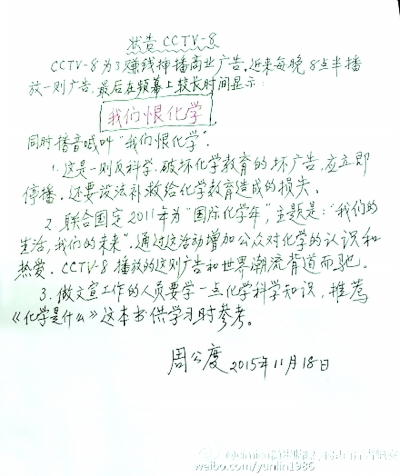 状告CCTV-8
CCTV-8为了赚钱插播商业广告.近来每晚8点半播
放一则广告,最后在频幕上较长时间显示:
我们恨化学
同时播音喊叫“我们恨化学”.
1.这是一则反科学,破坏化学教育的坏广告,应立即
停播.还要设法补救给化学教育造成的损失.
2.联合国定2011年为“国际化学年”,主题是:“我们的
生活,我们的未来”.通过这活动增加公众对化学的认识和
热爱.CCTV-8播放的这则广告和世界潮流背道而驰。
3.做文宣工作的人员要学一点化学科学知识,推荐
《化学是什么》这本书供学习时参考。
周公度 2015年11月18日
weibo.com/yunlin1986